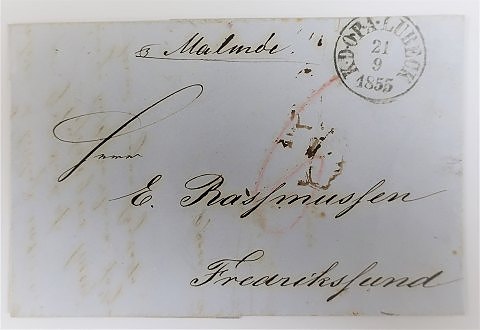 Malmöe.
K.D.O.P.A. LÜBECK
21
9
1855
Herrn
E. Rassmussen
Fredrikssund